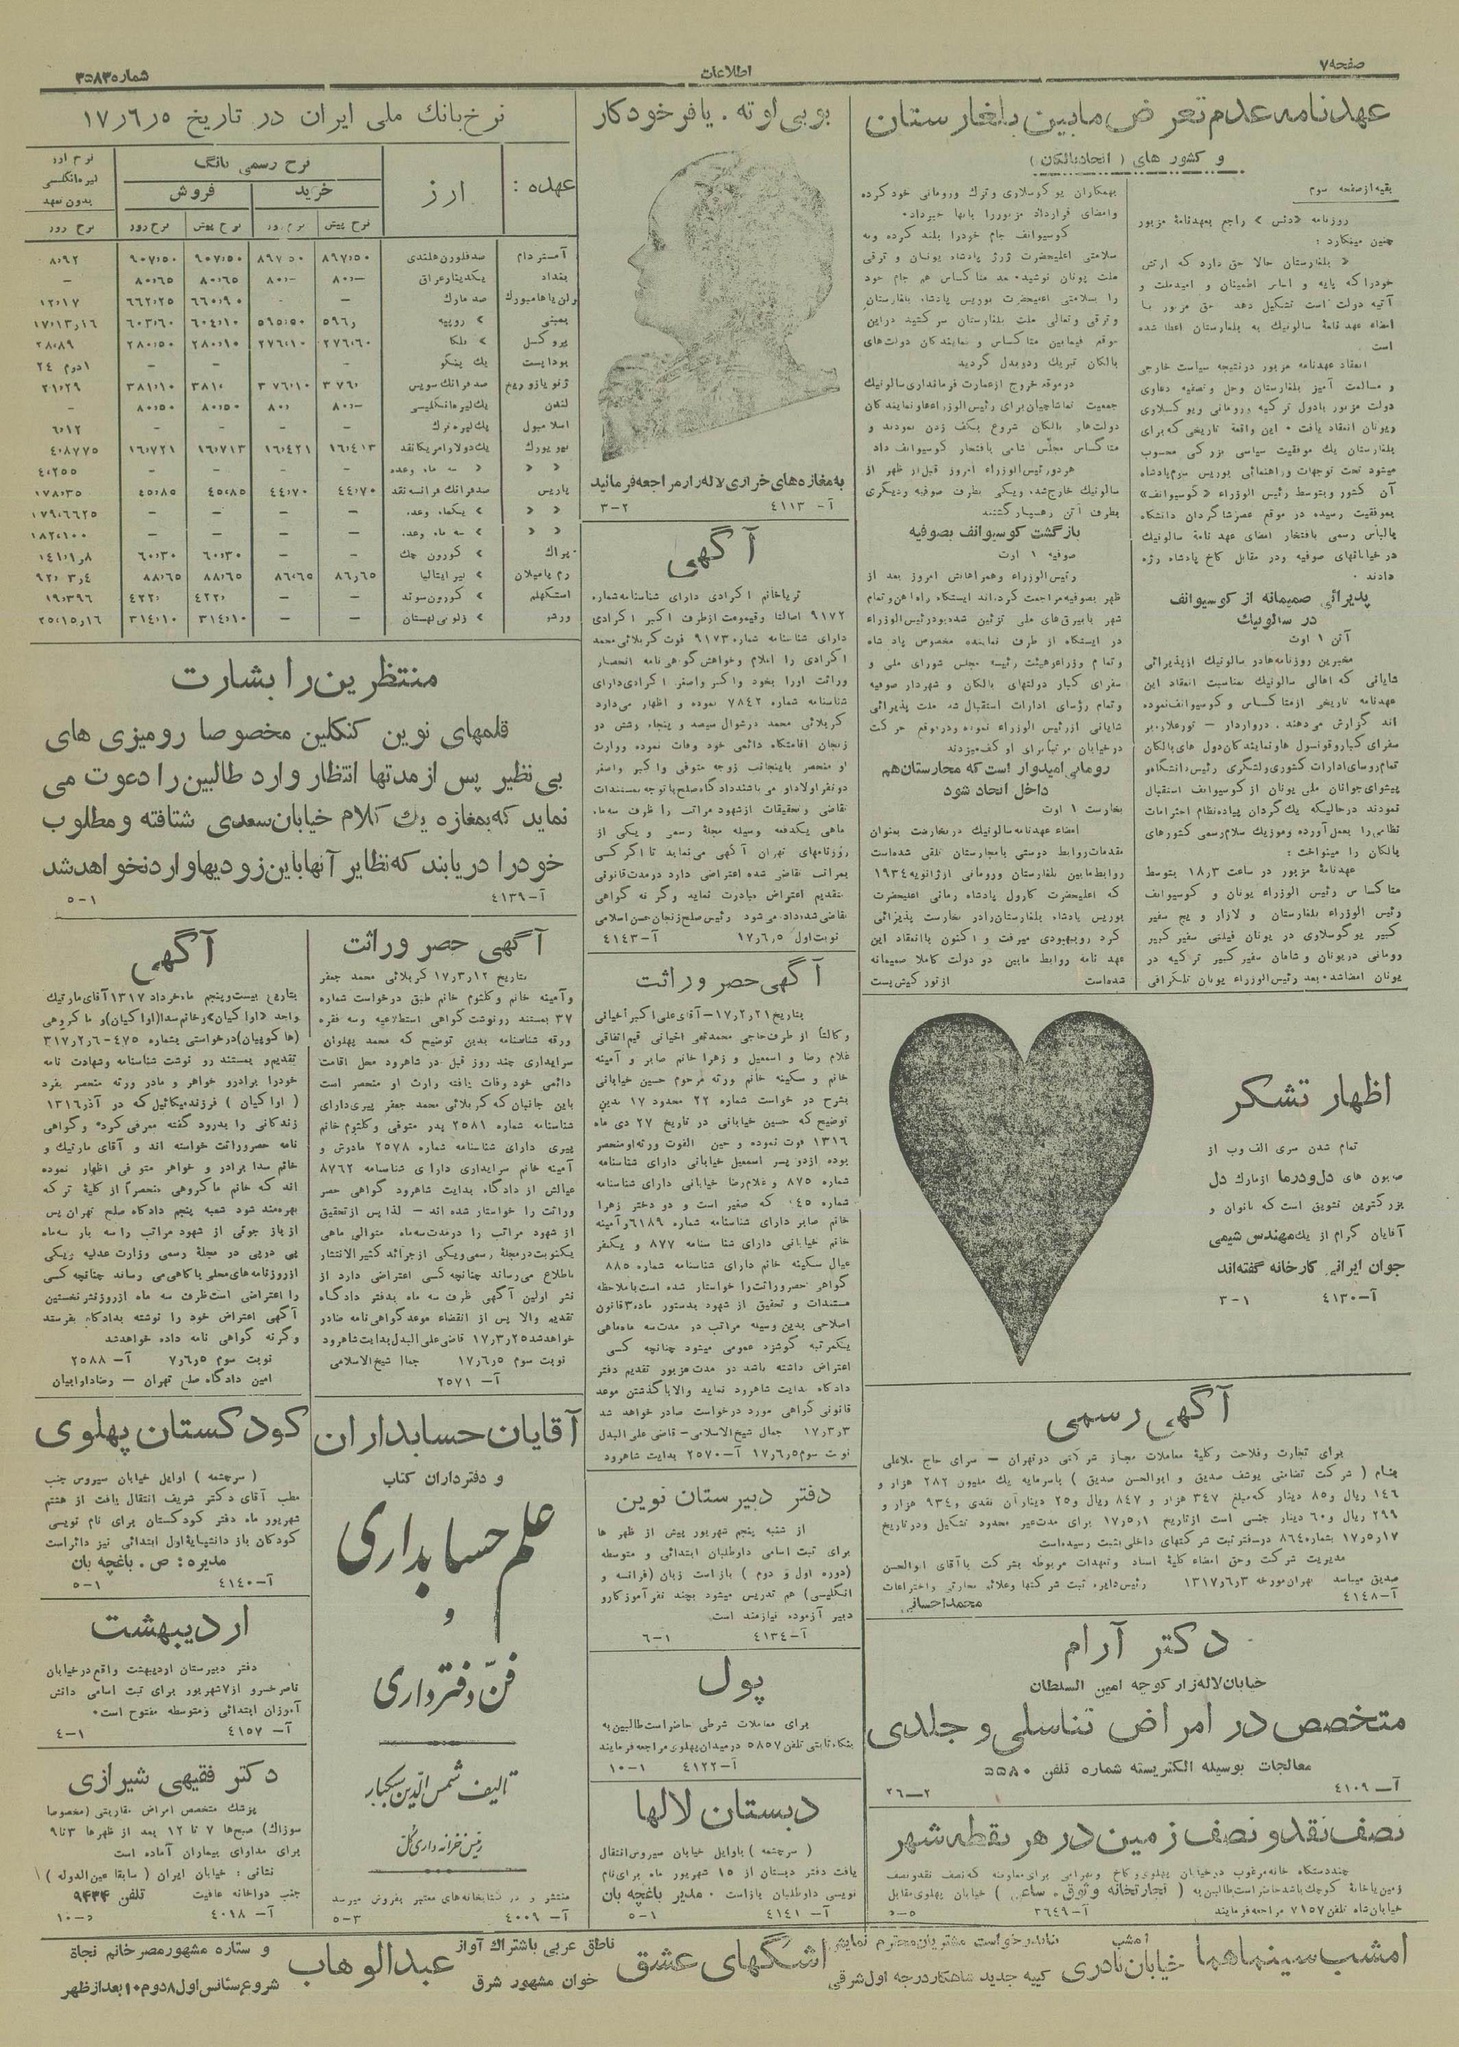 صفحه ۷
اطلاعات
شماره ۳۵۸۳
عهدنامه عدم تعرض مابین بلغارستان
و کشور های (اتحاد بالکان)
بقیه از صفحه سوم
روزنامه «دنس» راجع بعهدنامهٔ مزبور
چنین مینگارد:
« بلغارستان حالا حق دارد که ارتش
خودرا که پایه و اساس اطمینان و امید ملت و
آتیه دولت است تشکیل دهد حق مزبور با
امضاء عهدنامهٔ سالونیك به بلغارستان اعطا شده
است
انعقاد عهدنامه مزبور در نتیجه سیاست خارجی
و مسالمت آمیز بلغارستان وحل و تصفیه دعاوی
دولت مزبور بادول ترکیه ورومانی ویوگسلاوی
ویونان انعقاد یافت . این واقعهٔ تاریخی که برای
بلغارستان یك موفقیت سیاسی بزرگی محسوب
میشود تحت توجهات وراهنمائی بوریس سوم پادشاه
آن کشور وبتوسط رئیس الوزراء «کوسیوانف»
بموفقیت رسیده در موقع عصر شاگردان دانشگاه
بالباس رسمی بافتخار امضای عهد نامهٔ سالونیك
در خیابانهای صوفیه ودر مقابل کاخ پادشاه رژه
دادند .
پذیرائی صمیمانه از کوسیوانف
در سالونیك
آتن ۱ اوت
مخبرین روزنامه ها در سالونیك از پذیرائی
شایانی که اهالی سالونیك بمناسبت انعقاد این
عهدنامه تاریخی از متاکساس و کوسیوانف نموده
اند گزارش میدهند .
سفرای کبار و قونسول ها و نمایندگان دول های بالکان
تمام روسای ادارات کشوری ولشگری رئیس دانشگاه و
پیشوای جوانان ملی یونان از کوسیوانف استقبال
نمودند در حالیکه یك گردان پیاده نظام احترامات
نظامی را بعمل آورده وموزیك سلام رسمی کشورهای
بالکان را مینواخت :
عهدنامهٔ مزبور در ساعت ۱۸٫۳ بتوسط
متاکساس رئیس الوزراء یونان و کوسیوانف
رئیس الوزراء بلغارستان و لازار و یچ سفیر
کبیر یوگوسلاوی در یونان فیلتی سفیر کبیر
رومانی در یونان و شامان سفیر کبیر ترکیه در
یونان امضا شد. بعد رئیس الوزراء یونان تلگرافی
بهمکاران یوگوسلاوی وترك ورومانی خود کرده
وامضای قرارداد مزبور را بآنها خبر داد.
کوسیوانف جام خودرا بلند کرده وبه
سلامتی اعلیحضرت ژرژ پادشاه یونان و ترقی
ملت یونان نوشید. بعد متاکساس هم جام خود
را بسلامتی اعلیحضرت بوریس پادشاه بلغارستان
وترقی وتعالی ملت بلغارستان سر کشید در این
موقع فیمابین متاکساس و نمایندگان دولت های
بالکان تبریك ردوبدل گردید
در موقع خروج از عمارت فرمانداری سالونیك
جمعیت تماشاچیان برای رئیس الوزراء ها و نمایندگان
دولت های بالکان شروع بکف زدن نمودند و
متاکساس مجلس شامی بافتخار کوسیوانف داد
هر دو رئیس الوزراء امروز قبل از ظهر از
سالونیك خارج شد. ویکی بطرف صوفیه و دیگری
بطرف آتن رهسپار گشتند
بازگشت کوسیوانف بصوفیه
صوفیه ۱ اوت
رئیس الوزراء وهمراهانش امروز بعد از
ظهر بصوفیه مراجعت کردند ایستگاه راه آهن و تمام
شهر با بیرق های ملی تزئین شده بود رئیس الوزراء
در ایستگاه از طرف نماینده مخصوص پادشاه
وتمام وزراء وهیئت رئیسه مجلس شورای ملی و
سفرای کبار دولتهای بالکان و شهردار صوفیه
وتمام رؤسای ادارات استقبال شد ملت پذیرائی
شایانی از رئیس الوزراء نموده ودر موقع حرکت
در خیابان مرتبا برای او کف میزدند
رومانی امیدوار است که مجارستان هم
داخل اتحاد شود
بخارست ۱ اوت
امضاء عهدنامه سالونیك در بخارست بعنوان
مقدمات روابط دوستی با مجارستان تلقی شده است
روابط مابین بلغارستان ورومانی از ژانویه ۱۹۳٤
که اعلیحضرت کارول پادشاه رومانی اعلیحضرت
بوریس پادشاه بلغارستان را در بخارست پذیرائی
کرد رو به بهبودی میرفت و اکنون با انعقاد این
عهد نامه روابط مابین دو دولت کاملا صمیمانه
شده است از تورکیش پست
اظهار تشکر
تمام شدن سری الف و ب از
صابون های دل ودرما از مارك دل
بزرگترین تشویق است که بانوان و
آقایان گرام از یك مهندس شیمی
جوان ایرانی کارخانه گفته اند
آ—٤۱۳۰ ۱—۳
آگهی رسمی
برای تجارت وفلاحت وکلیهٔ معاملات مجاز شرکتی در تهران — سرای حاج ملاعلی
بنام (شرکت تضامنی یوسف صدیق و ابوالحسن صدیق) با سرمایه یك ملیون ۲۸۲ هزار و
۱٤٦ ریال و ۸۵ دینار که مبلغ ۳٤۷ هزار و ۸٤۷ ریال و ۲۵ دینار آن نقدی و ۹۳٤ هزار و
۲۹۹ ریال و ٦۰ دینار جنسی است از تاریخ ۱۷٫۵٫۱ برای مدت غیر محدود تشکیل ودر تاریخ
۱۷٫۵٫۱۷ بشماره ۸٦٤ در دفتر ثبت شرکتهای داخلی بثبت رسیده است
مدیریت شرکت وحق امضاء کلیهٔ اسناد وتعهدات مربوطه بشرکت با آقای ابوالحسن
صدیق میباشد تهران مورخه ۱۳۱۷٫٦٫۳ رئیس دایره ثبت شرکتها وعلائم تجارتی واختراعات
آ—٤۱٤۸ محمد احسانی
دکتر آرام
خیابان لاله زار کوچه امین السلطان
متخصص در امراض تناسلی و جلدی
معالجات بوسیله الکتریسته شماره تلفن ۵۵۸۰
آ—٤۱۰۹ ۲—۲٦
نصف نقد و نصف زمین در هر نقطه شهر
چند دستگاه خانه مرغوب در خیابان پهلوی وکاخ برای معاوضه که نصف نقد ونصف
زمین یا خانهٔ کوچك باشد حاضر است طالبین به (تجارتخانه وثوق. ساعی) خیابان پهلوی مقابل
خیابان شاه تلفن ۷۱۵۷ مراجعه فرمایند آ—۳٦٤۹
بوبی اوته . یا فر خودکار
به مغازه های خرازی لاله زار مراجعه فرمائید
آ—٤۱۱۳ ۲—۳
آگهی
ثریا خانم اکرادی دارای شناسنامه شماره
۹۱۷۲ اصالتا وقیمومت از طرف اکبر اکرادی
دارای شناسنامه شماره ۹۱۷۳ فوت کربلائی محمد
اکرادی را اعلام وخواهش گواهی نامه انحصار
وراثت اورا بخود واکبر واصغر اکرادی دارای
شناسنامه شماره ۷۸٤۲ نموده و اظهار می دارد
کربلائی محمد در شوال سیصد و پنجاه رشش دو
زنجان اقامتگاه دائمی خود وفات نموده ووارث
او منحصر باینجانب زوجه متوفی واکبر واصغر
دو نفر اولاد او می باشند دادگاه صلح با توجه بمستندات
تقاضی وتحقیقات از شهود مراتب را ظرف سه ماه
ماهی یکدفعه وسیله مجلهٔ رسمی ویکی از
روزنامهای تهران آگهی می نماید تا اگر کسی
بمراتب تقاضی شده اعتراضی دارد در مدت قانونی
بتقدیم اعتراض مبادرت نماید وگرنه گواهی
تقاضی شده داده می شود رئیس صلح زنجان حسن اسلامی
نوبت اول ۱۷٫٦٫۵ آ—٤۱٤۳
آگهی حصر وراثت
بتاریخ ۱۷٫۲٫۲۱— آقای علی اکبر اخیانی
وکالتا از طرف حاجی محمد تقی اخیانی قیم اتفاقی
غلام رضا و اسمعیل و زهرا خانم صابر و آمینه
خانم و سکینه خانم ورثه مرحوم حسین خیابانی
بشرح در خواست شماره ۲۲ محدود ۱۷ بدین
توضیح که حسین خیابانی در تاریخ ۲۷ دی ماه
۱۳۱٦ فوت نموده و حین الفوت ورثه او منحصر
بوده از دو پسر اسمعیل خیابانی دارای شناسنامه
شماره ۸۷۵ و غلام رضا خیابانی دارای شناسنامه
شماره ٤۵۰ که صغیر است و دو دختر زهرا
خانم صابر دارای شناسنامه شماره ٦۱۸۹ وآمینه
خانم خیابانی دارای شناسنامه ۸۷۷ و یکنفر
عیال سکینه خانم دارای شناسنامه شماره ۸۸۵
گواهی حصر وراثت را خواستار شده است با ملاحظه
مستندات و تحقیق از شهود بدستور ماده ۳ قانون
اصلاحی بدین وسیله مراتب در مدت سه ماه ماهی
یکمرتبه گوشزد عمومی میشود چنانچه کسی
اعتراض داشته باشد در مدت مزبور تقدیم دفتر
دادگاه بدایت شاهرود نماید والا با گذشتن موعد
قانونی گواهی مورد درخواست صادر خواهد شد
۱۷٫۳٫۳ جمال شیخ الاسلامی — قاضی علی البدل
نوبت سوم ۱۷٫٦٫۵ آ—۲۵۷۰ بدایت شاهرود
دفتر دبیرستان نوین
از شنبه پنجم شهریور پیش از ظهر ها
برای ثبت اسامی داوطلبان ابتدائی و متوسطه
(دوره اول و دوم) باز است زبان (فرانسه و
انگلیسی) هم تدریس میشود بچند نفر آموزگار و
دبیر آزموده نیازمند است.
آ—٤۱۳٤ ۱—٦
پول
برای معاملات شرطی حاضر است طالبین به
بنگاه ثابتی تلفن ۵۸۵۷ در میدان پهلوی مراجعه فرمایند
آ—٤۱۲۲ ۱—۱۰
دبستان لالها
(سرچشمه) با اوایل خیابان سیروس انتقال
یافت دفتر دبستان از ۱۵ شهریور ماه برای نام
نویسی داوطلبان باز است . مدیر باغچه بان
آ—٤۱٤۱ ۱—۵
نرخ بانك ملی ایران در تاریخ ۱۷٫٦٫۵
عهده : ارز نرخ رسمی بانگ نرخ ارز لیره انگلیسی بدون تعهد
خرید فروش
نرخ پیش نرخ روز نرخ پیش نرخ روز نرخ روز
آمستردام صد فلورن هلندی ۸۹۷٫۵۰ ۸۹۷٫۵۰ ۹۰۷٫۵۰ ۹۰۷٫۵۰ ۸٫۹۲
بغداد یکدینار عراق ۸۰٫– ۸۰٫– ۸۰٫٦۵ ۸۰٫٦۵ –
برلن یا هامبورك صد مارك – – ٦٦۰٫۹۰ ٦٦۲٫۲۵ ۱۲٫۱۷
بمبئی » روپیه ۵۹٦٫ ۵۹۵٫۵۰ ٦۰٤٫۱۰ ٦۰۳٫٦۰ ۱۷٫۱۳٫۱٦
بروکسل » بلگا ۲۷٦٫٦۰ ۲۷٦٫۱۰ ۲۸۰٫۱۰ ۲۸۰٫۵۰ ۲۸٫۸۹
بوداپست یك پنگو – – – – ۲٤ دوم
ژنو یا زوریخ صد فرانك سویس ۳۷٦٫ ۳۷٦٫۱۰ ۳۸۱٫ ۳۸۱٫۱۰ ۲۱٫۲۹
لندن یك لیره انگلیسی ۸۰٫– ۸۰٫ ۸۰٫۵۰ ۸۰٫۵۰ –
اسلامبول یك لیره ترك – – – – ٦٫۱۲
نیویورك یك دولار امریکا نقد ۱٦٫٤۱۳ ۱٦٫٤۲۱ ۱٦٫۷۱۳ ۱٦٫۷۲۱ ٤٫۸۷۷۵
» » » سه ماه وعده – – – – ٤٫۲۵۵
پاریس صد فرانك فرانسه نقد ٤٤٫۷۰ ٤٤٫۷۰ ٤۵٫۸۵ ٤۵٫۸۵ ۱۷۸٫۳۵
» » » یکماه وعده – – – – ۱۷۹٫٦٦۲۵
» » » سه ماه وعده – – – – ۱۸۲٫۱۰۰
پراك » کورون چك – – ٦۰٫۳۰ ٦۰٫۳۰ ۱٤۱٫۱٫۸
رم یا میلان » لیر ایتالیا ۸٦٫٦۵ ۸٦٫٦۵ ۸۸٫٦۵ ۸۸٫٦۵ ۹۲٫۳٫٤
استکهلم » کورون سوئد – – ٤۲۲٫ ٤۲۲٫ ۱۹٫۳۹٦
ورشو » زلوتی لهستان – – ۳۱٤٫۱۰ ۳۱٤٫۱۰ ۲۵٫۱۵٫۱٦
منتظرین را بشارت
قلمهای نوین کنکلین مخصوصا رومیزی های
بی نظیر پس از مدتها انتظار وارد طالبین را دعوت می
نماید که بمغازه یك کلام خیابان سعدی شتافته و مطلوب
خود را دریابند که نظایر آنها باین زودیها وارد نخواهد شد
آ—٤۱۳۹ ۱—۵
آگهی حصر وراثت
بتاریخ ۱۷٫۳٫۱۲ کربلائی محمد جعفر
وآمینه خانم وکلثوم خانم طبق درخواست شماره
۳۷ بمستند رونوشت گواهی استطلاعیه وسه فقره
ورقه شناسنامه بدین توضیح که محمد پهلوان
سرایداری چند روز قبل در شاهرود محل اقامت
دائمی خود وفات یافته وارث او منحصر است
باین جانبان که کربلائی محمد جعفر پیری دارای
شناسنامه شماره ۲۵۸۱ پدر متوفی وکلثوم خانم
پیری دارای شناسنامه شماره ۲۵۷۸ مادرش و
آمینه خانم سرایداری دارای شناسنامه ۸۷٦۲
عیالش از دادگاه بدایت شاهرود گواهی حصر
وراثت را خواستار شده اند — لذا پس از تحقیق
از شهود مراتب را در مدت سه ماه متوالی ماهی
یکنوبت در مجلهٔ رسمی ویکی از جرائد کثیر الانتشار
باطلاع می رساند چنانچه کسی اعتراضی دارد از
نشر اولین آگهی ظرف سه ماه بدفتر دادگاه
تقدیم والا پس از انقضاء موعد گواهی نامه صادر
خواهد شد ۱۷٫۳٫۲۵ قاضی علی البدل بدایت شاهرود
نوبت سوم ۱۷٫٦٫۵ جمال شیخ الاسلامی
آ—۲۵۷۱
آگهی
بتاریخ بیست وپنجم ماه خرداد ۱۳۱۷ آقای مارتیك
واحد «اواکیان» وخانم سدا (اواکیان) و ماکروهی
(هاکوپیان) درخواستی بشماره ٤۷۵—۳۱۷٫۲٫٦
تقدیم و بمستند رو نوشت شناسنامه وشهادت نامه
خودرا برادر و خواهر و مادر ورثه منحصر بفرد
(اواکیان) فرزند میکائیل که در آذر ۱۳۱٦
زندگانی را بدرود گفته معرفی کرده وگواهی
نامه حصر وراثت خواسته اند و آقای مارتیك و
خانم سدا برادر و خواهر متوفی اظهار نموده
اند که خانم ماکروهی منحصرا از کلیهٔ ترکه
بهره مند شود شعبه پنجم دادگاه صلح تهران پس
از باز جوئی از شهود مراتب را سه بار سه ماه
پی در پی در مجلهٔ رسمی وزارت عدلیه ویکی
از روزنامه های محلی باگاهی می رساند چنانچه کسی
را اعتراضی است ظرف سه ماه از روز نشر نخستین
آگهی اعتراض خود را نوشته بدادگاه بفرستد
وگرنه گواهی نامه داده خواهد شد
نوبت سوم ۷٫٦٫۵ آ—۲۵۸۸
امین دادگاه صلح تهران — رضا دارابیان
آقایان حسابداران
و دفترداران کتاب
علم حسابداری
و
فنّ دفترداری
تالیف شمس الدین سبکبار
رئیس خزانه داری کل
منتشر و در کتابخانه های معتبر بفروش میرسد
آ—٤۰۰۹ ۳—۵
کودکستان پهلوی
(سرچشمه) اوایل خیابان سیروس جنب
مطب آقای دکتر شریف انتقال یافت از هشتم
شهریور ماه دفتر کودکستان برای نام نویسی
کودکان باز دانشپایهٔ اول ابتدائی نیز دائر است
مدیره : ص . باغچه بان
آ—٤۱٤۰ ۱—۵
اردیبهشت
دفتر دبیرستان اردیبهشت واقع در خیابان
ناصر خسرو از ۷ شهریور برای ثبت اسامی دانش
آموزان ابتدائی ومتوسطه مفتوح است.
آ—٤۱۵۷ ۱—٤
دکتر فقیهی شیرازی
پزشك متخصص امراض مقاربتی (مخصوصا
سوزاك) صبح ها ۷ تا ۱۲ بعد از ظهرها ۳ تا ۹
برای مداوای بیماران آماده است
نشانی : خیابان ایران (سابقا عین الدوله)
جنب دواخانه عافیت تلفن ۹٤۳٤
آ—٤۰۱۸
امشب سینما هما امشب خیابان نادری بنا بدرخواست مشتریان محترم نمایش کپیه جدید شاهکار درجه اول شرقی اشگهای عشق ناطق عربی باشتراك آواز خوان مشهور شرق عبدالوهاب و ستاره مشهور مصر خانم نجاة
شروع سئانس اول ۸ دوم ۱۰ بعد از ظهر